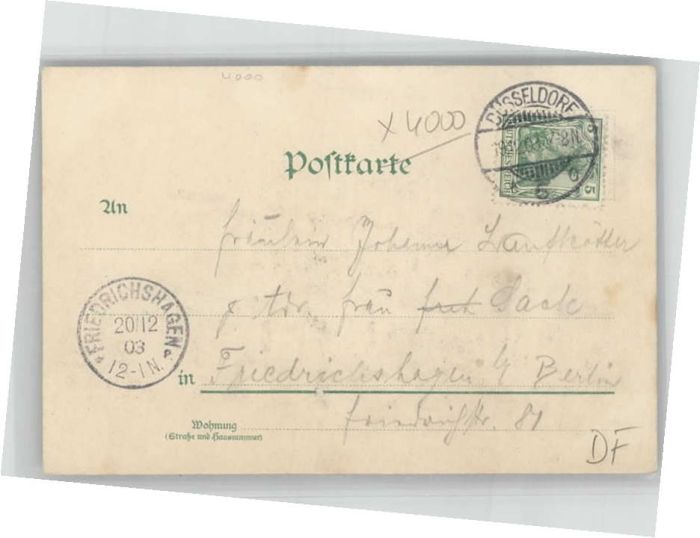 4000
x 4000
DÜSSELDORF
7-8N
5
Postkarte
DEUTSCHES REICH
5
An
Fräulein Johanna
p. Adr. Frau Sack
FRIEDRICHSHAGEN
20/12
03
12-1N.
in Friedrichshagen b/ Berlin
Wohnung
(Straße und Hausnummer)
Friedrichstr. 81
DF